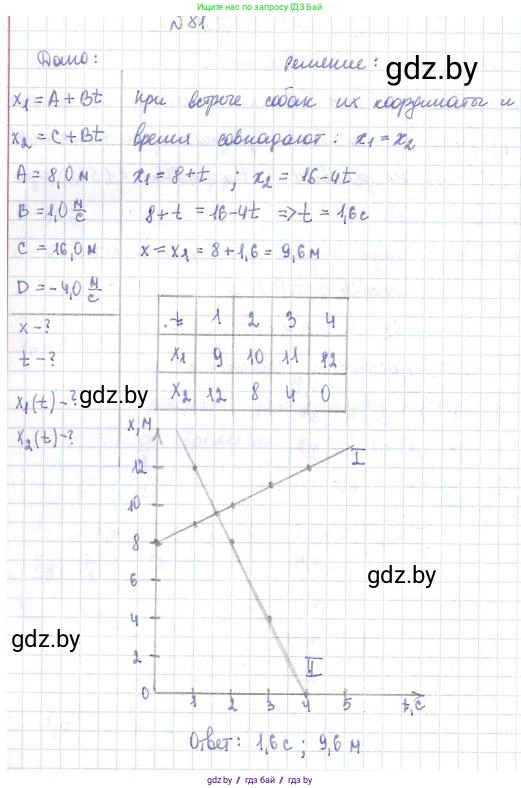 Пишите нам по вопросам @ЗБай
№ 81
Дано:
x₁ = A + Bt
x₂ = C + Bt
A = 8,0 м
B = 1,0 м/с
C = 16,0 м
D = -4,0 м/с
x - ?
t - ?
x₁(t) - ?
x₂(t) - ?
Решение:
при встрече собак их координаты и
время совпадают: x₁ = x₂
x₁ = 8 + t ; x₂ = 16 - 4t
8 + t = 16 - 4t => t = 1,6 с
x = x₁ = 8 + 1,6 = 9,6 м
t 1 2 3 4
x₁ 9 10 11 12
x₂ 12 8 4 0
x, м
12
10
8
6
4
2
0
1 2 3 4 5 t, с
I
II
Ответ: 1,6 с ; 9,6 м
gdz.by
gdz.by
gdz.by
gdz.by
gdz.by / гдз бай / gdz.by